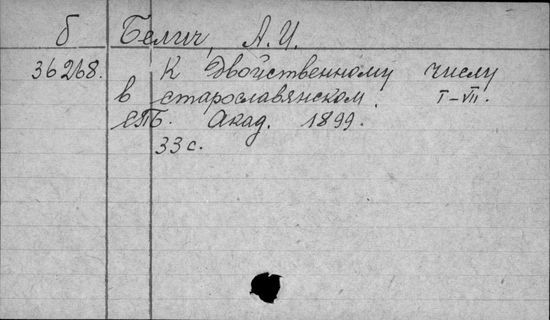 б Белич, А. И.
36268. К двойственному числу
в старославянском. I-VII.
СПБ. Акад. 1899.
33 с.